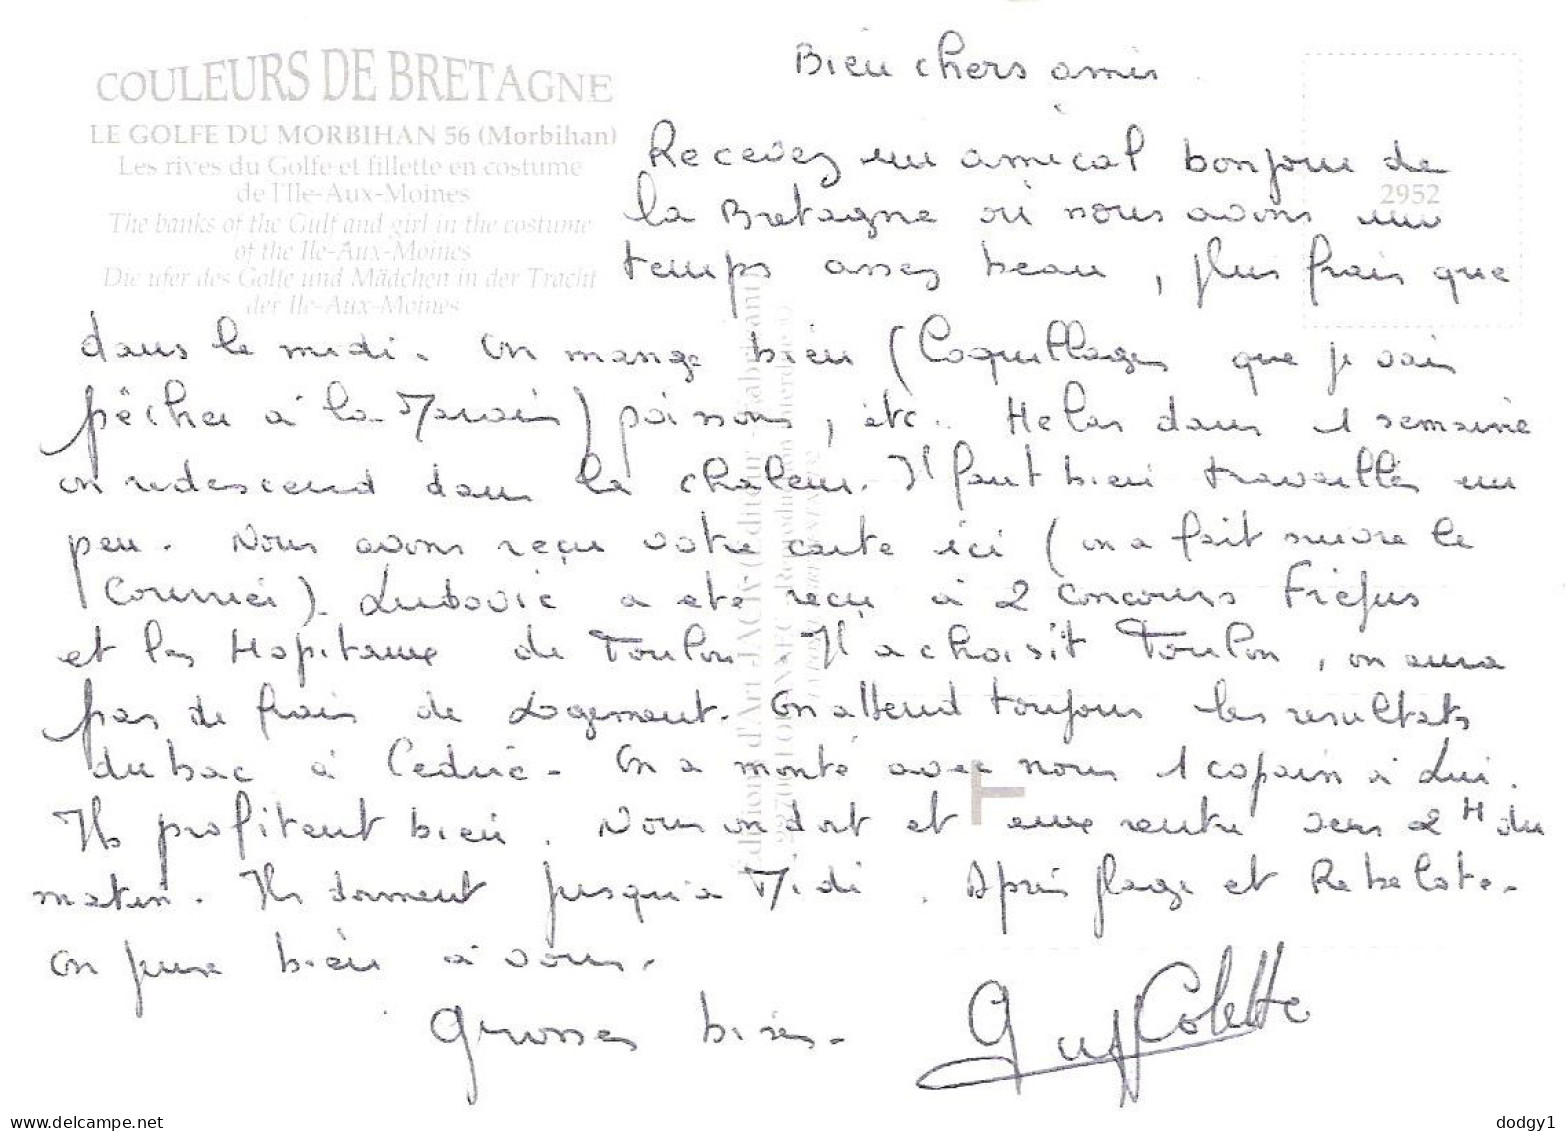 COULEURS DE BRETAGNE
LE GOLFE DU MORBIHAN 56 (Morbihan)
Les rives du Golfe et fillette en costume
de l'Ile-Aux-Moines
The banks of the Gulf and girl in the costume
of the Ile-Aux-Moines
Die ufer des Golfe und Mädchen in der Tracht
der Ile-Aux-Moines
2952
Bien chers amis
Recevez un amical bonjour de
la Bretagne où nous avons un
temps assez beau, plus frais que
dans le midi. On mange bien (Coquillages que je vais
pêcher à la Marée) poissons, etc.. Helas dans 1 semaine
on redescend dans la chaleur. Il faut bien travailler un
peu. Nous avons reçu votre carte ici (on a fait suivre le
Courrier). Ludovic a eté reçu à 2 concours Frejus
et les Hopitaux de Toulon Il a choisit Toulon, on aura
pas de frais de Logement. On attend toujours les resultats
du bac à Cedric. On a monté avec nous 1 copain à Lui.
Ils profitent bien. Nous on dort et eux rentre vers 2H du
matin. Ils dorment jusqu'à Midi. Après plage et Rebelote.
On pense bien à vous.
Grosses bises.
Guy Colette
Édition d'Art JACK (Éditeur - Fabricant)
Reproduction interdite
www.delcampe.net
dodgy1